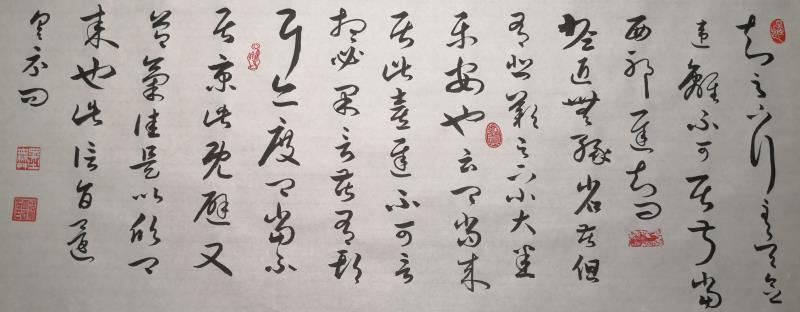 知足下行至吳念
違離不可居叔當
西耶遲知問
瞻近無緣省苦但
有悲歎足下小大悉
平安也云卿當來
居此喜遲不可言
想必果言苦有期
耳亦度卿當不
居京此既避又
節氣佳是以欣卿
來也此信旨還
具示問